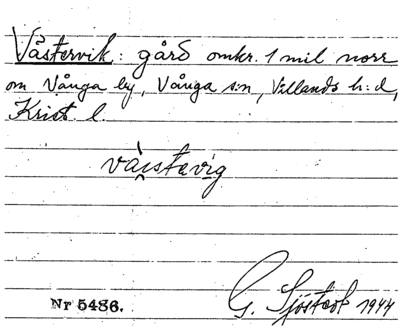 Västervik: gård omkr. 1 mil norr
om Vånga by, Vånga s:n, Villands h:d,
Krist. l.
väistavig
G. Sjöstedt 1944
Nr 5486.